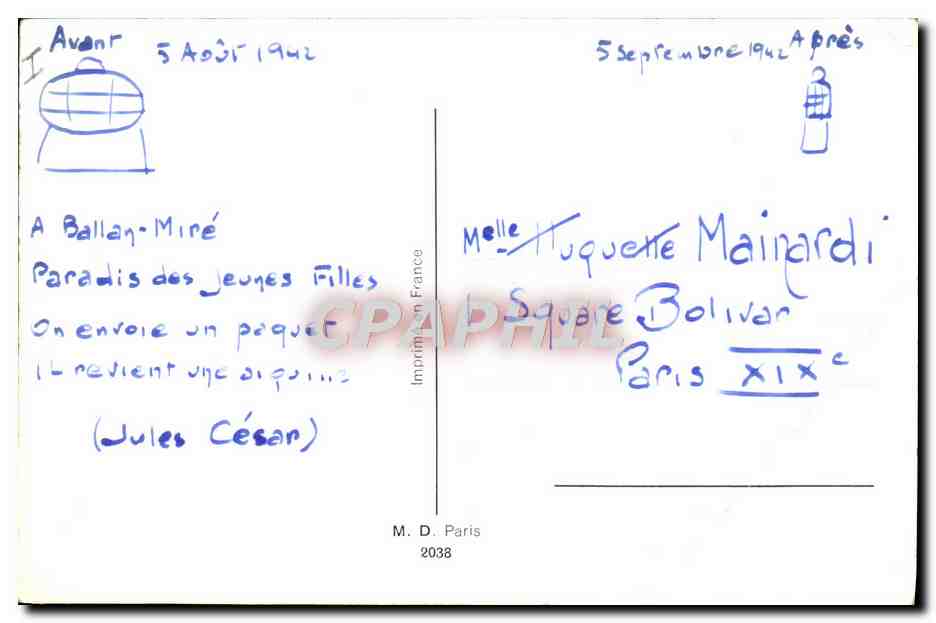 I
Avant
5 Août 1942
5 Septembre 1942
Après
A Ballan-Miré
Paradis des Jeunes Filles
On envoie un paquet
il revient une
(Jules César)
Imprimé en France
Melle Huguette Mainardi
Square Bolivar
Paris XIXe
CPAPHIL
M. D. Paris
2038